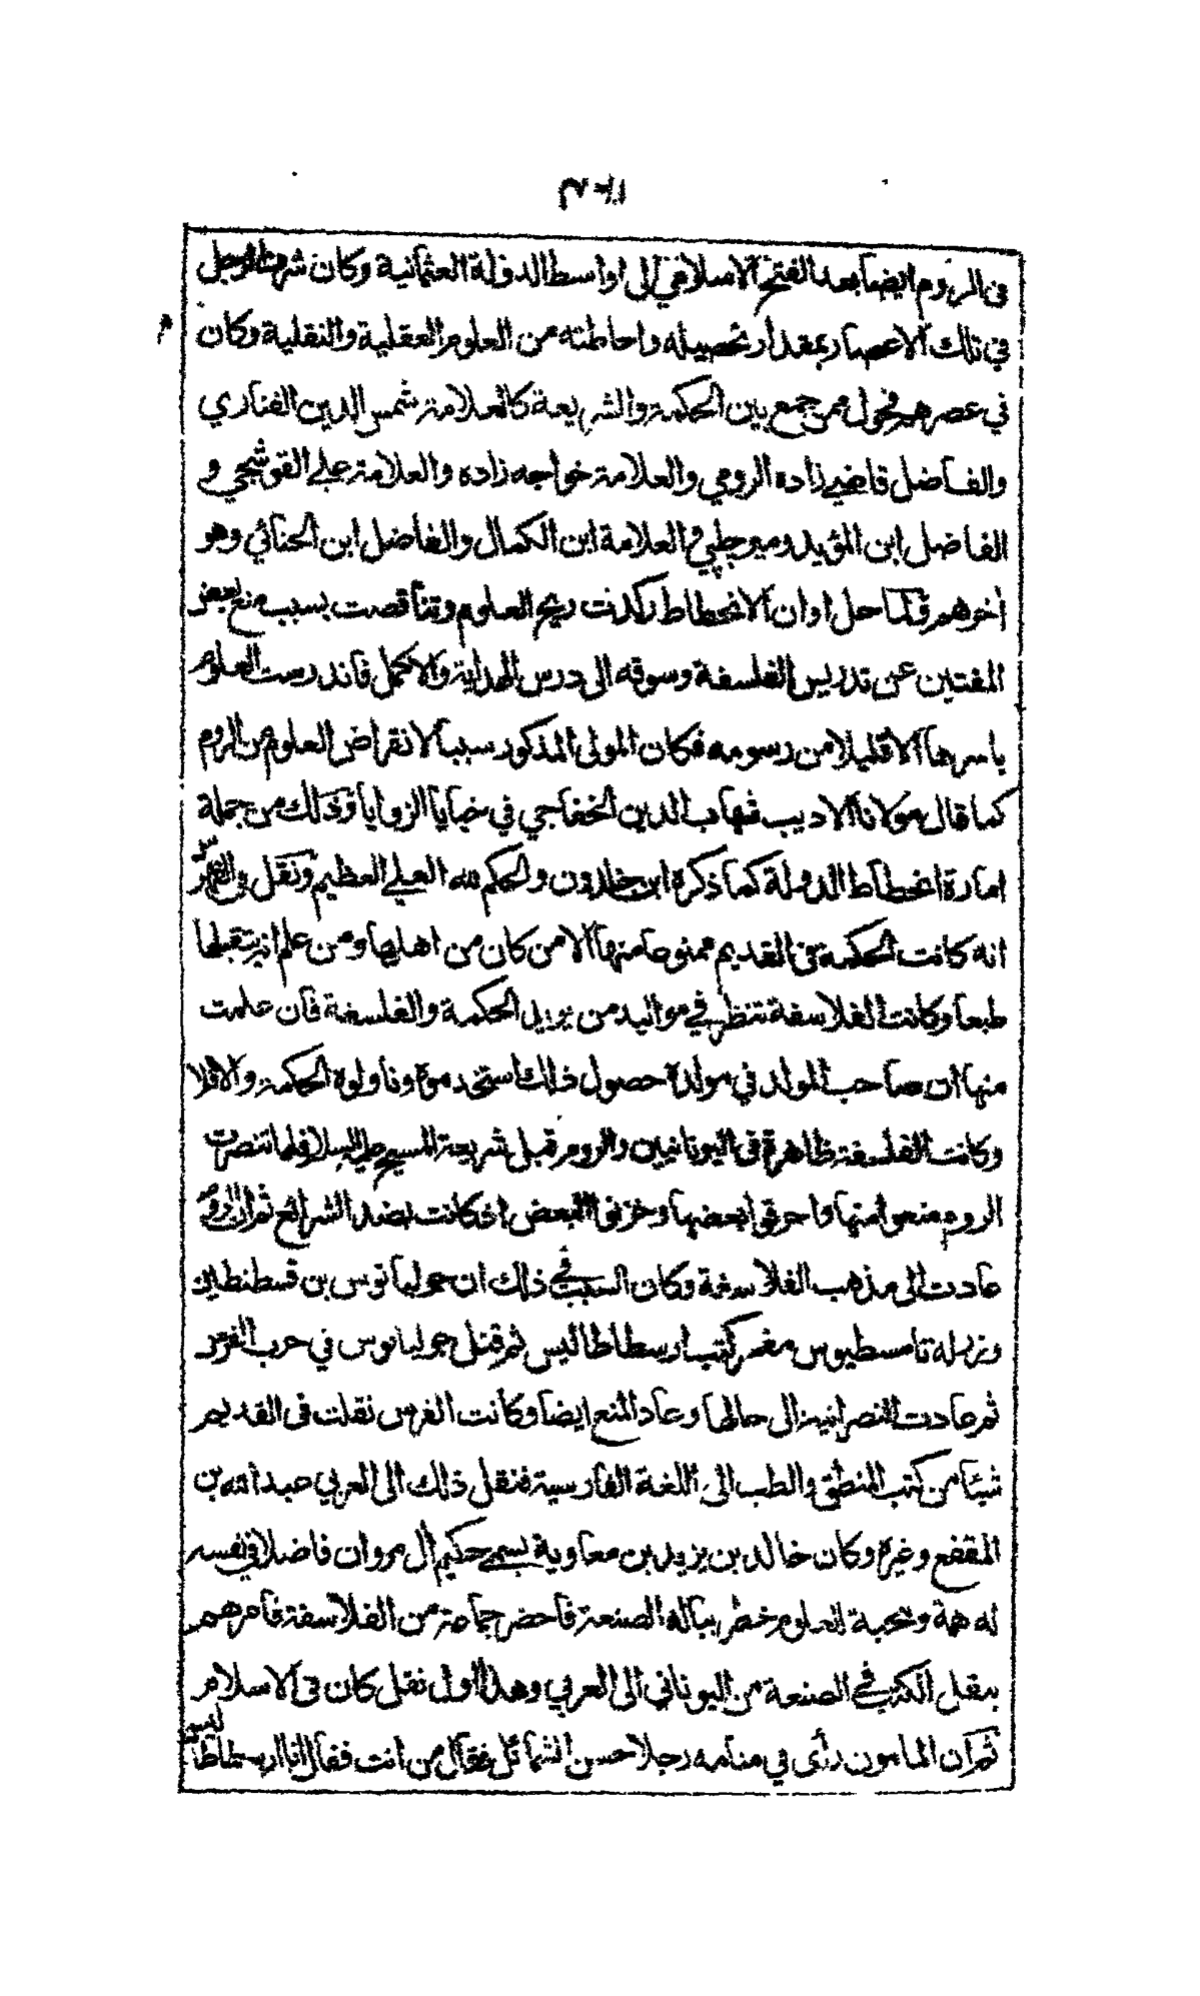 في الروم ايضا بعد الفتح الاسلامي الى اواسط الدولة العثمانية وكان شرف الرجل
في تلك الاعصار بمقدار تحصيله واحاطته من العلوم العقلية والنقلية وكان
في عصرهم فحول ممن جمع بين الحكمة والشريعة كالعلامة شمس الدين الفناري
والفاضل قاضي زاده الرومي والعلامة خواجه زاده والعلامة علي القوشجي و
الفاضل ابن المؤيد وميرجلبي والعلامة ابن الكمال والفاضل ابن الحنائي وهو
اخرهم فلما حل اوان الانحطاط ركدت ريح العلوم وتناقصت بسبب منع بعض
المفتين عن تدريس الفلسفة وسوقه الى درس الهداية والاكمل فاندرست العلوم
باسرها الا قليلا من رسومه فكان المولى المذكور سببا لانقراض العلوم من الروم
كما قال مولانا الاديب شهاب الدين الخفاجي في خبايا الزوايا وذلك من جملة
امارة انحطاط الدولة كما ذكره ابن خلدون والحكم لله العلي العظيم ونقل في الفهرس
انه كانت الحكمة في القديم ممنوعا منها الا من كان من اهلها ومن علم انه يتقبلها
طبعا وكانت الفلاسفة تنظر في مواليد من يريد الحكمة والفلسفة فان علمت
منها ان صاحب المولد في مولده حصول ذلك استخدموه وناولوه الحكمة والا فلا
وكانت الفلسفة ظاهرة في اليونانيين والروم قبل شريعة المسيح عليه السلام فلما تنصرت
الروم منعوا منها واحرقوا بعضها وخزنوا البعض اذ كانت بضد الشرائع ثم ان الروم
عادت الى مذهب الفلاسفة وكان السبب في ذلك ان جوليانوس بن قسطنطين
وزر له تامسطيوس مفسر كتب ارسطاطاليس ثم قتل جوليانوس في حرب الفرس
ثم عادت النصرانية الى حالها وعاد المنع ايضا وكانت الفرس نقلت في القديم
شيئا من كتب المنطق والطب الى اللغة الفارسية فنقل ذلك الى العربي عبد الله بن
المقفع وغيره وكان خالد بن يزيد بن معاوية يسمى حكيم آل مروان فاضلا في نفسه
له همة ومحبة للعلوم خطر بباله الصنعة فاحضر جماعة من الفلاسفة فامرهم
بنقل الكتب في الصنعة من اليوناني الى العربي وهذا اول نقل كان في الاسلام
ثم ان المامون رأى في منامه رجلا حسن الشمائل فقال من انت فقال انا ارسطاطاليس